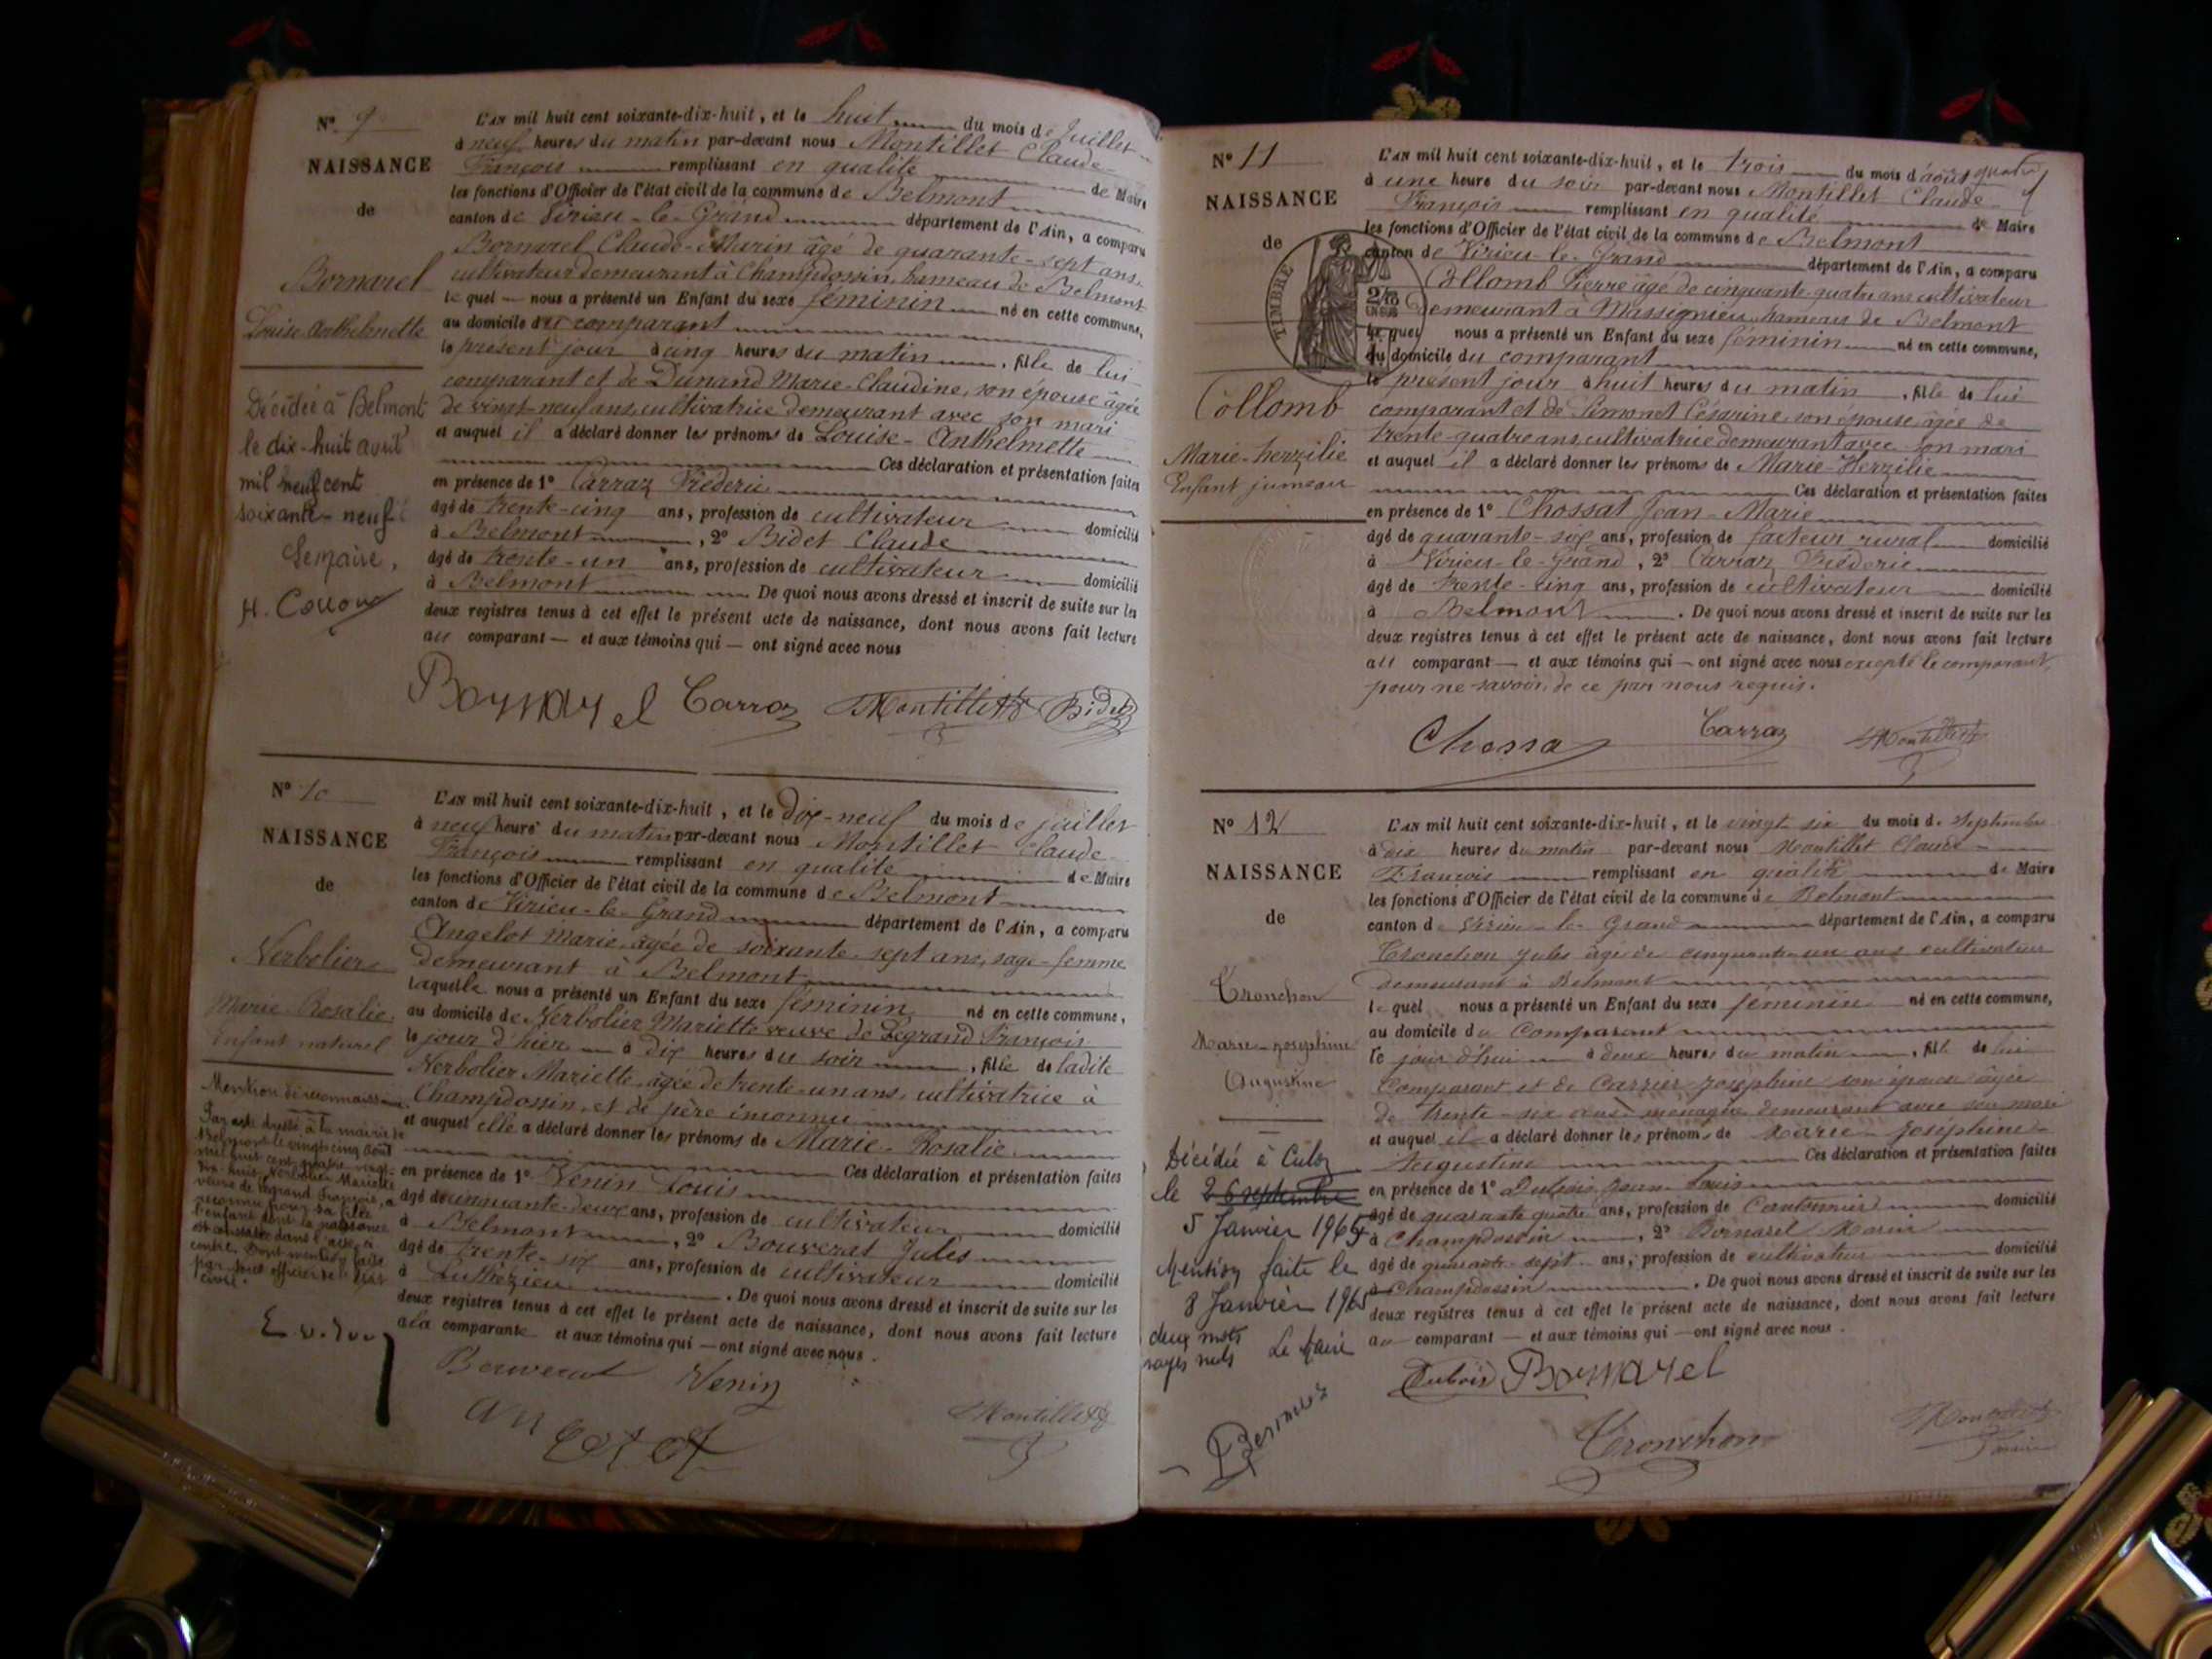 N° 9
NAISSANCE
de
Bornarel
Louise-Anthelmette
Décédée à Belmont
le dix-huit avril
mil neuf cent
soixante-neuf
Le maire,
L'AN mil huit cent soixante-dix-huit, et le huit du mois de Juillet
à neuf heures du matin par-devant nous Montillet Claude-
François remplissant en qualité de Maire
les fonctions d'Officier de l'état civil de la commune de Belmont
canton de Virieu-le-Grand département de l'Ain, a comparu
Bornarel Claude-Marin âgé de quarante-sept ans,
cultivateur demeurant à Champdossin, hameau de Belmont
lequel nous a présenté un Enfant du sexe féminin né en cette commune,
au domicile du comparant
le présent jour à cinq heures du matin, fille de lui
comparant et de Dunand Marie-Claudine, son épouse âgée
de vingt-neuf ans, cultivatrice demeurant avec son mari
et auquel il a déclaré donner les prénoms de Louise-Anthelmette
Ces déclaration et présentation faites
en présence de 1° Carraz Fréderic
âgé de trente-cinq ans, profession de cultivateur domicilié
à Belmont, 2° Bidet Claude
âgé de trente-un ans, profession de cultivateur domicilié
à Belmont De quoi nous avons dressé et inscrit de suite sur les
deux registres tenus à cet effet le présent acte de naissance, dont nous avons fait lecture
au comparant — et aux témoins qui — ont signé avec nous
Bornarel Carraz Montillet Bidet
N° 10
NAISSANCE
de
Nerbolier
Marie-Rosalie,
Enfant naturel
Mention de reconnaissance
Par acte dressé à la mairie de
Belmont le vingt-cinq août
mil huit cent quatre vingt
dix-huit, Nerbolier Mariette
veuve de Legrand François, a
reconnu pour sa fille
l'enfant dont la naissance
est constatée dans l'acte ci
contre. Dont mention faite
par nous officier de l'état
civil.
L'AN mil huit cent soixante-dix-huit, et le Dix-neuf du mois de juillet
à neuf heure du matin par-devant nous Montillet Claude-
François remplissant en qualité de Maire
les fonctions d'Officier de l'état civil de la commune de Belmont
canton de Virieu-le-Grand département de l'Ain, a comparu
Angelot Marie, âgée de soixante-sept ans, sage-femme
demeurant à Belmont
laquelle nous a présenté un Enfant du sexe féminin né en cette commune,
au domicile de Nerbolier Mariette veuve de Legrand François
le jour d'hier à dix heures du soir, fille de ladite
Nerbolier Mariette, âgée de trente-un ans, cultivatrice à
Champdossin, et de père inconnu
et auquel elle a déclaré donner les prénoms de Marie-Rosalie
Ces déclaration et présentation faites
en présence de 1° Venin Louis
âgé de cinquante-deux ans, profession de cultivateur domicilié
à Belmont, 2° Bouverat Jules
âgé de trente-six ans, profession de cultivateur domicilié
à Luthézieu. De quoi nous avons dressé et inscrit de suite sur les
deux registres tenus à cet effet le présent acte de naissance, dont nous avons fait lecture
à la comparante et aux témoins qui — ont signé avec nous.
Bouverat Venin
Montillet
N° 11
NAISSANCE
de
TIMBRE
Collomb
Marie-herzilie
Enfant jumeau
L'AN mil huit cent soixante-dix-huit, et le trois du mois d'août
à une heure du soir par-devant nous Montillet Claude-
François remplissant en qualité de Maire
les fonctions d'Officier de l'état civil de la commune de Belmont
canton de Virieu-le-Grand département de l'Ain, a comparu
Collomb Pierre âgé de cinquante-quatre ans cultivateur
demeurant à Massignieu, hameau de Belmont
lequel nous a présenté un Enfant du sexe féminin né en cette commune,
au domicile du comparant
le présent jour à huit heures du matin, fille de lui
comparant et de Simonet Césarine, son épouse âgée de
trente-quatre ans, cultivatrice demeurant avec son mari
et auquel il a déclaré donner les prénoms de Marie-Herzilie
Ces déclaration et présentation faites
en présence de 1° Chossat Jean-Marie
âgé de quarante-six ans, profession de facteur rural domicilié
à Virieu-le-Grand, 2° Carraz Fréderic
âgé de trente-cinq ans, profession de cultivateur domicilié
à Belmont. De quoi nous avons dressé et inscrit de suite sur les
deux registres tenus à cet effet le présent acte de naissance, dont nous avons fait lecture
au comparant — et aux témoins qui — ont signé avec nous excepté le comparant,
pour ne savoir, de ce par nous requis.
Chossat Carraz Montillet
N° 12
NAISSANCE
de
Tronchon
Marie-Joséphine
Augustine
Décédée à Culoz
le 26 septembre
5 Janvier 1965
Mention faite le
8 Janvier 1965
deux mots
rayés nuls Le Maire
L'AN mil huit cent soixante-dix-huit, et le vingt six du mois de Septembre
à dix heures du matin par-devant nous Montillet Claude-
François remplissant en qualité de Maire
les fonctions d'Officier de l'état civil de la commune de Belmont
canton de Virieu-le-Grand département de l'Ain, a comparu
Tronchon Jules âgé de cinquante un ans cultivateur
demeurant à Belmont
lequel nous a présenté un Enfant du sexe féminin né en cette commune,
au domicile du Comparant
le jour d'hui à deux heures du matin, fille de lui
Comparant et de Carrier Joséphine son épouse âgée
de trente-six ans ménagère demeurant avec son mari
et auquel il a déclaré donner les prénoms de Marie-Joséphine-
Augustine Ces déclaration et présentation faites
en présence de 1° Dubois Jean-Louis
âgé de quarante quatre ans, profession de Cantonnier domicilié
à Champdossin, 2° Bornarel Marin
âgé de quarante-sept ans, profession de cultivateur domicilié
à Champdossin. De quoi nous avons dressé et inscrit de suite sur les
deux registres tenus à cet effet le présent acte de naissance, dont nous avons fait lecture
au comparant — et aux témoins qui — ont signé avec nous.
Dubois Bornarel
Tronchon Montillet